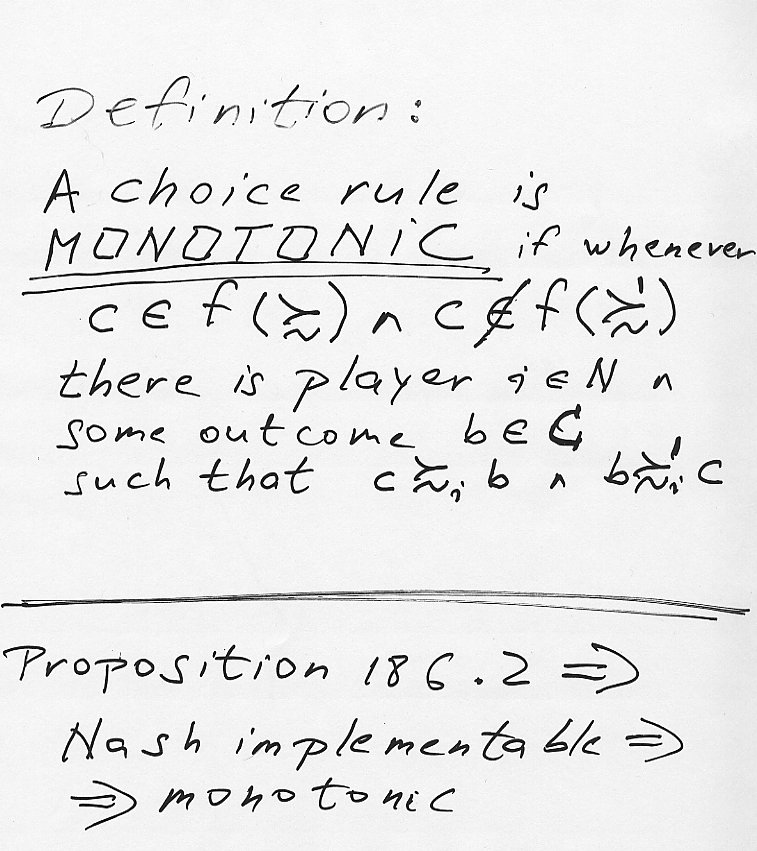 Definition:
A choice rule is
MONOTONIC if whenever
c ∈ f(≿) ∧ c ∉ f(≿')
there is player i ∈ N ∧
some outcome b ∈ C
such that c ≿ᵢ b ∧ b ≿'ᵢ c
Proposition 186.2 ⇒
Nash implementable ⇒
⇒ monotonic